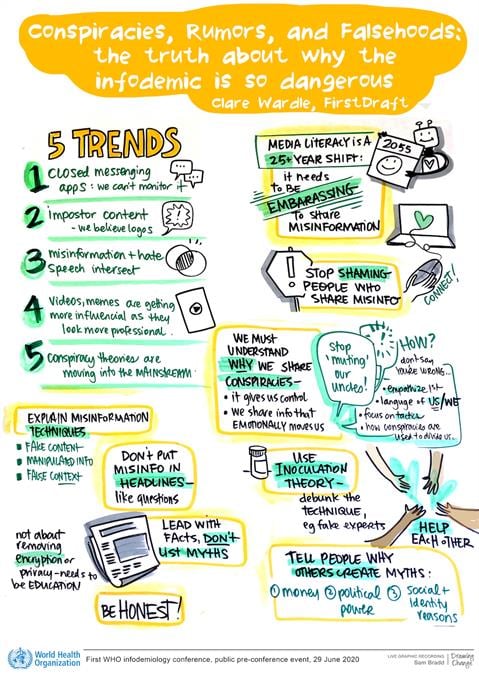 Conspiracies, Rumors, and Falsehoods:
the truth about why the
infodemic is so dangerous
Clare Wardle, FirstDraft
5 TRENDS
1 CLOSED messenging
apps: we can't monitor it
2 impostor content
- we believe logos
3 misinformation + hate
Speech intersect
4 Videos, memes are getting
more influencial as they
look more professional.
5 Conspiracy theories are
moving into the MAINSTREAM
MEDIA LITERACY IS A
25+ YEAR SHIFT:
2055
it needs
to BE
EMBARASSING
To share
MISINFORMATION
STOP SHAMING
PEOPLE WHO
SHARE MISINFO
CONNECT!
WE MUST
UNDERSTAND
WHY WE SHARE
CONSPIRACIES-
• it gives us control
• We share info that
EMOTIONALLY moves us
Stop
'muting'
our
uncles!
HOW?
don't say
YOU'RE WRONG...
• empathize 1st
• language of US/WE
• focus on tactics
• how conspiracies are
used to divide us...
EXPLAIN MISINFORMATION
TECHNIQUES
FAKE CONTENT
MANIPULATED INFO
FALSE CONTEXT
DON'T PUT
MISINFO IN
HEADLINES-
like questions
USE
INOCULATION
THEORY-
debunk the
TECHNIQUE,
eg fake experts
HELP
EACH OTHER
not about
removing
encryption or
privacy - needs to
be EDUCATION
LEAD WITH
FACTS, DON'T
LIST MYTHS
BE HONEST!
TELL PEOPLE WHY
OTHERS CREATE MYTHS:
① money ② political
power
③ Social +
identity
reasons
World Health
Organization
First WHO infodemiology conference, public pre-conference event, 29 June 2020
LIVE GRAPHIC RECORDING
Sam Bradd
Drawing
Change